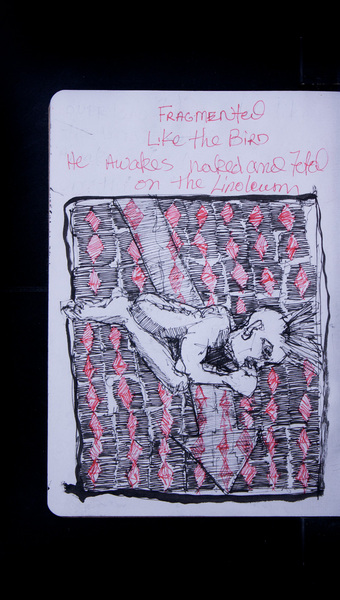 FRAGMENted
Like the BIRD
He Awakes naked and Fetal
on the Linoleum